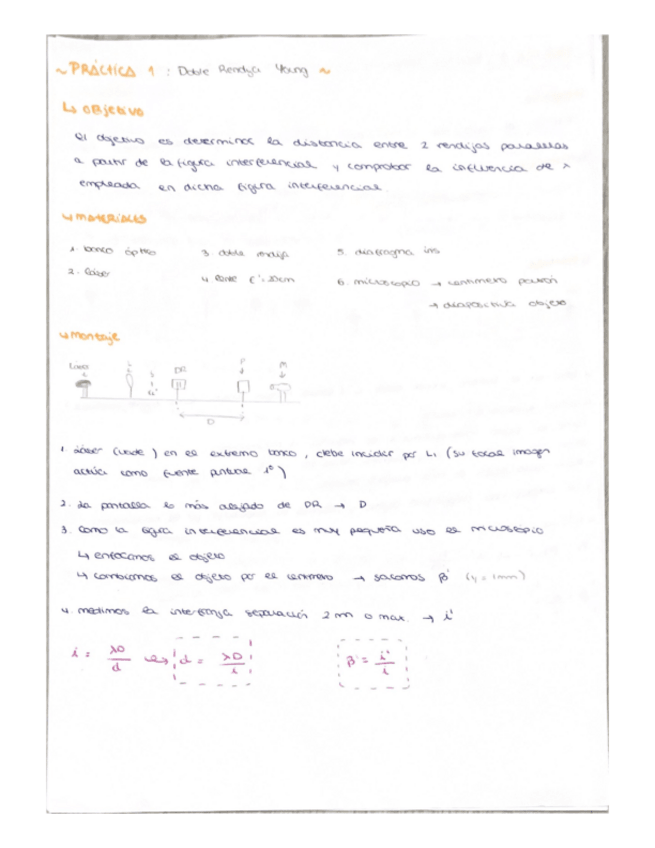 ~ PRÁCTICA 1 : Doble Rendija Young ~
↳ OBJetivo
El objetivo es determinar la distancia entre 2 rendijas paralelas
a partir de la figura interferencial y comprobar la influencia de λ
empleada en dicha figura interferencial.
↳ MATERIALES
1. banco óptico 3. doble rendija 5. diafragma iris
2. láser 4. lente f'= 20cm 6. microscopio → centímetro patrón
→ diapositiva objeto
↳ Montaje
Láser L DR P M
D
1. Láser (verde) en el extremo banco, debe incidir por L1 (su focal imagen
actúa como fuente puntual 1º)
2. La pantalla lo más alejado de DR → D
3. Como la figura interferencial es muy pequeña uso el microscopio
↳ enfocamos el objeto
↳ cambiamos el objeto por el centímetro → sacamos β' (y = 1mm)
4. medimos la interfranja separación 2 min o max. → i'
i = λD / d ↪ d = λD / i β' = i' / i